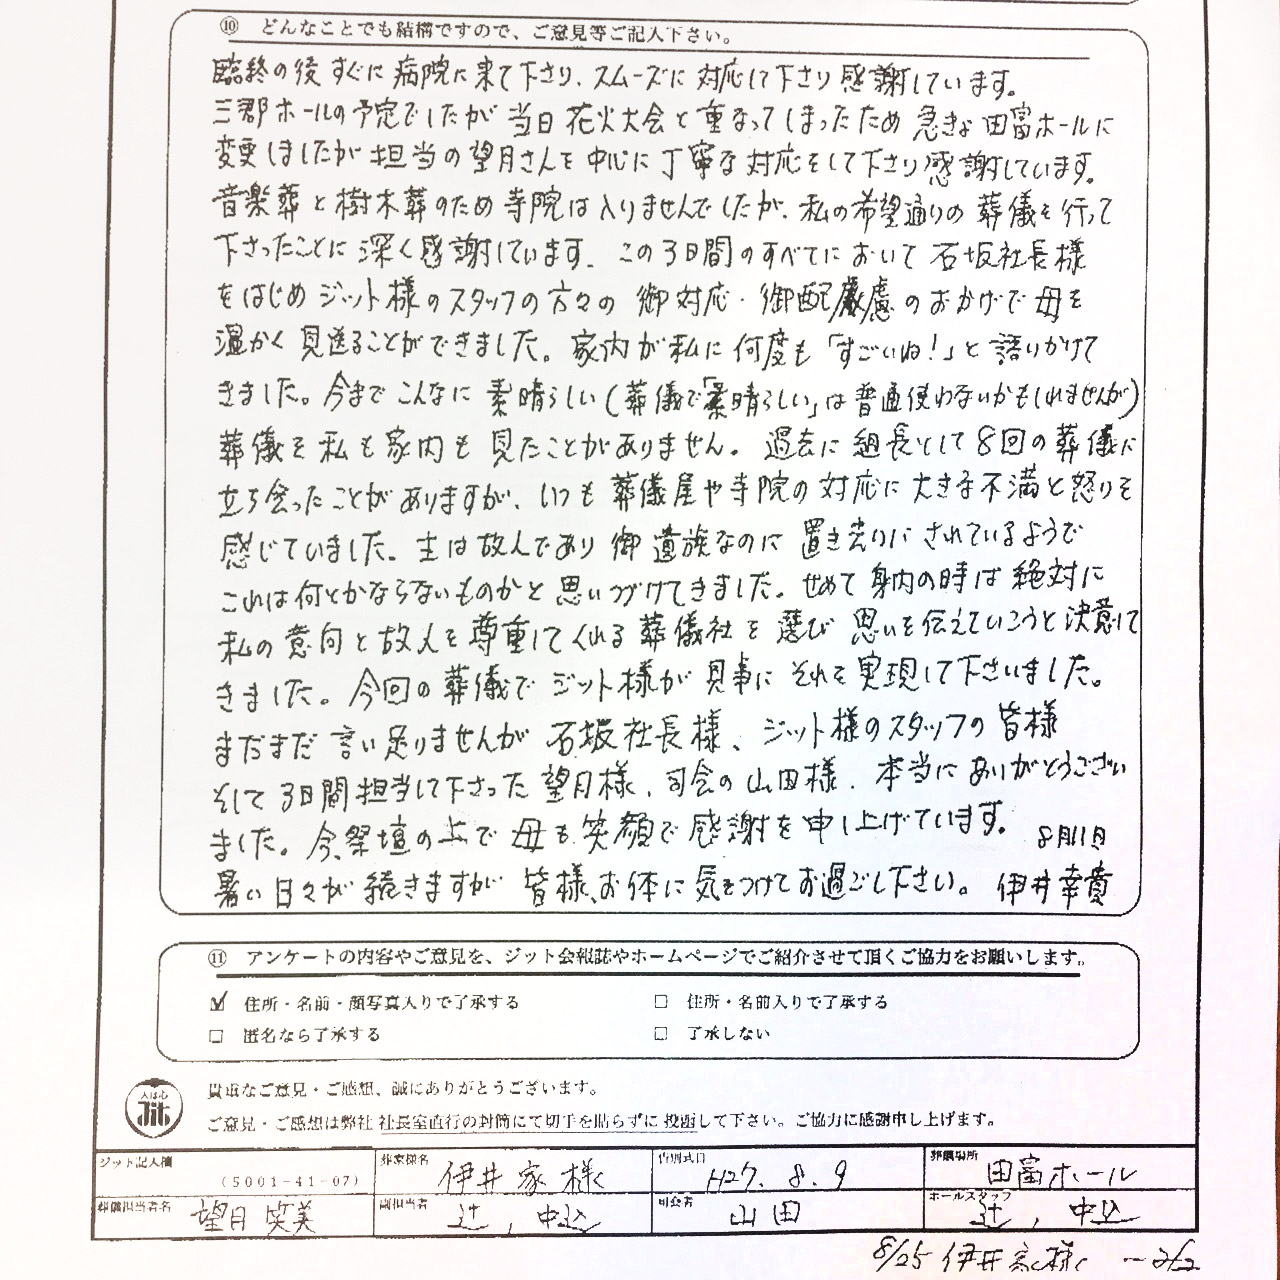 ⑩ どんなことでも結構ですので、ご意見等ご記入下さい。
臨終の後すぐに病院に来て下さり、スムーズに対応して下さり感謝しています。
三郡ホールの予定でしたが当日花火大会と重なってしまったため急きょ田富ホールに
変更しましたが担当の望月さんを中心に丁寧な対応をして下さり感謝しています。
音楽葬と樹木葬のため寺院は入りませんでしたが、私の希望通りの葬儀を行って
下さったことに深く感謝しています。この3日間のすべてにおいて石坂社長様
をはじめジット様のスタッフの方々の御対応・御配慮のおかげで母を
温かく見送ることができました。家内が私に何度も「すごいね!」と語りかけて
きました。今までこんなに素晴らしい(葬儀で「素晴らしい」は普通使わないかもしれませんが)
葬儀を私も家内も見たことがありません。過去に組長として8回の葬儀に
立ち会ったことがありますが、いつも葬儀屋や寺院の対応に大きな不満と怒りを
感じていました。主は故人であり御遺族なのに置き去りにされているようで
これは何とかならないものかと思いつづけてきました。せめて身内の時は絶対に
私の意向と故人を尊重してくれる葬儀社を選び思いを伝えていこうと決意して
きました。今回の葬儀でジット様が見事にそれを実現して下さいました。
まだまだ言い足りませんが石坂社長様、ジット様のスタッフの皆様
そして3日間担当して下さった望月様、司会の山田様、本当にありがとうござい
ました。今、祭壇の上で母も笑顔で感謝を申し上げています。 8月11日
暑い日々が続きますが皆様、お体に気をつけてお過ごし下さい。 伊井幸貴
⑪ アンケートの内容やご意見を、ジット会報誌やホームページでご紹介させて頂くご協力をお願いします。
☑ 住所・名前・顔写真入りで了承する □ 住所・名前入りで了承する
□ 匿名なら了承する □ 了承しない
人は心 Jit
貴重なご意見・ご感想、誠にありがとうございます。
ご意見・ご感想は弊社 社長室直行の封筒にて切手を貼らずに 投函して下さい。ご協力に感謝申し上げます。
ジット記入欄 (5001-41-07) 葬家様名 伊井家様 告別式日 H27.8.9 葬儀場所 田富ホール
葬儀担当者名 望月笑美 副担当者 辻、中込 司会者 山田 ホールスタッフ 辻、中込
8/25 伊井家様 -2/2